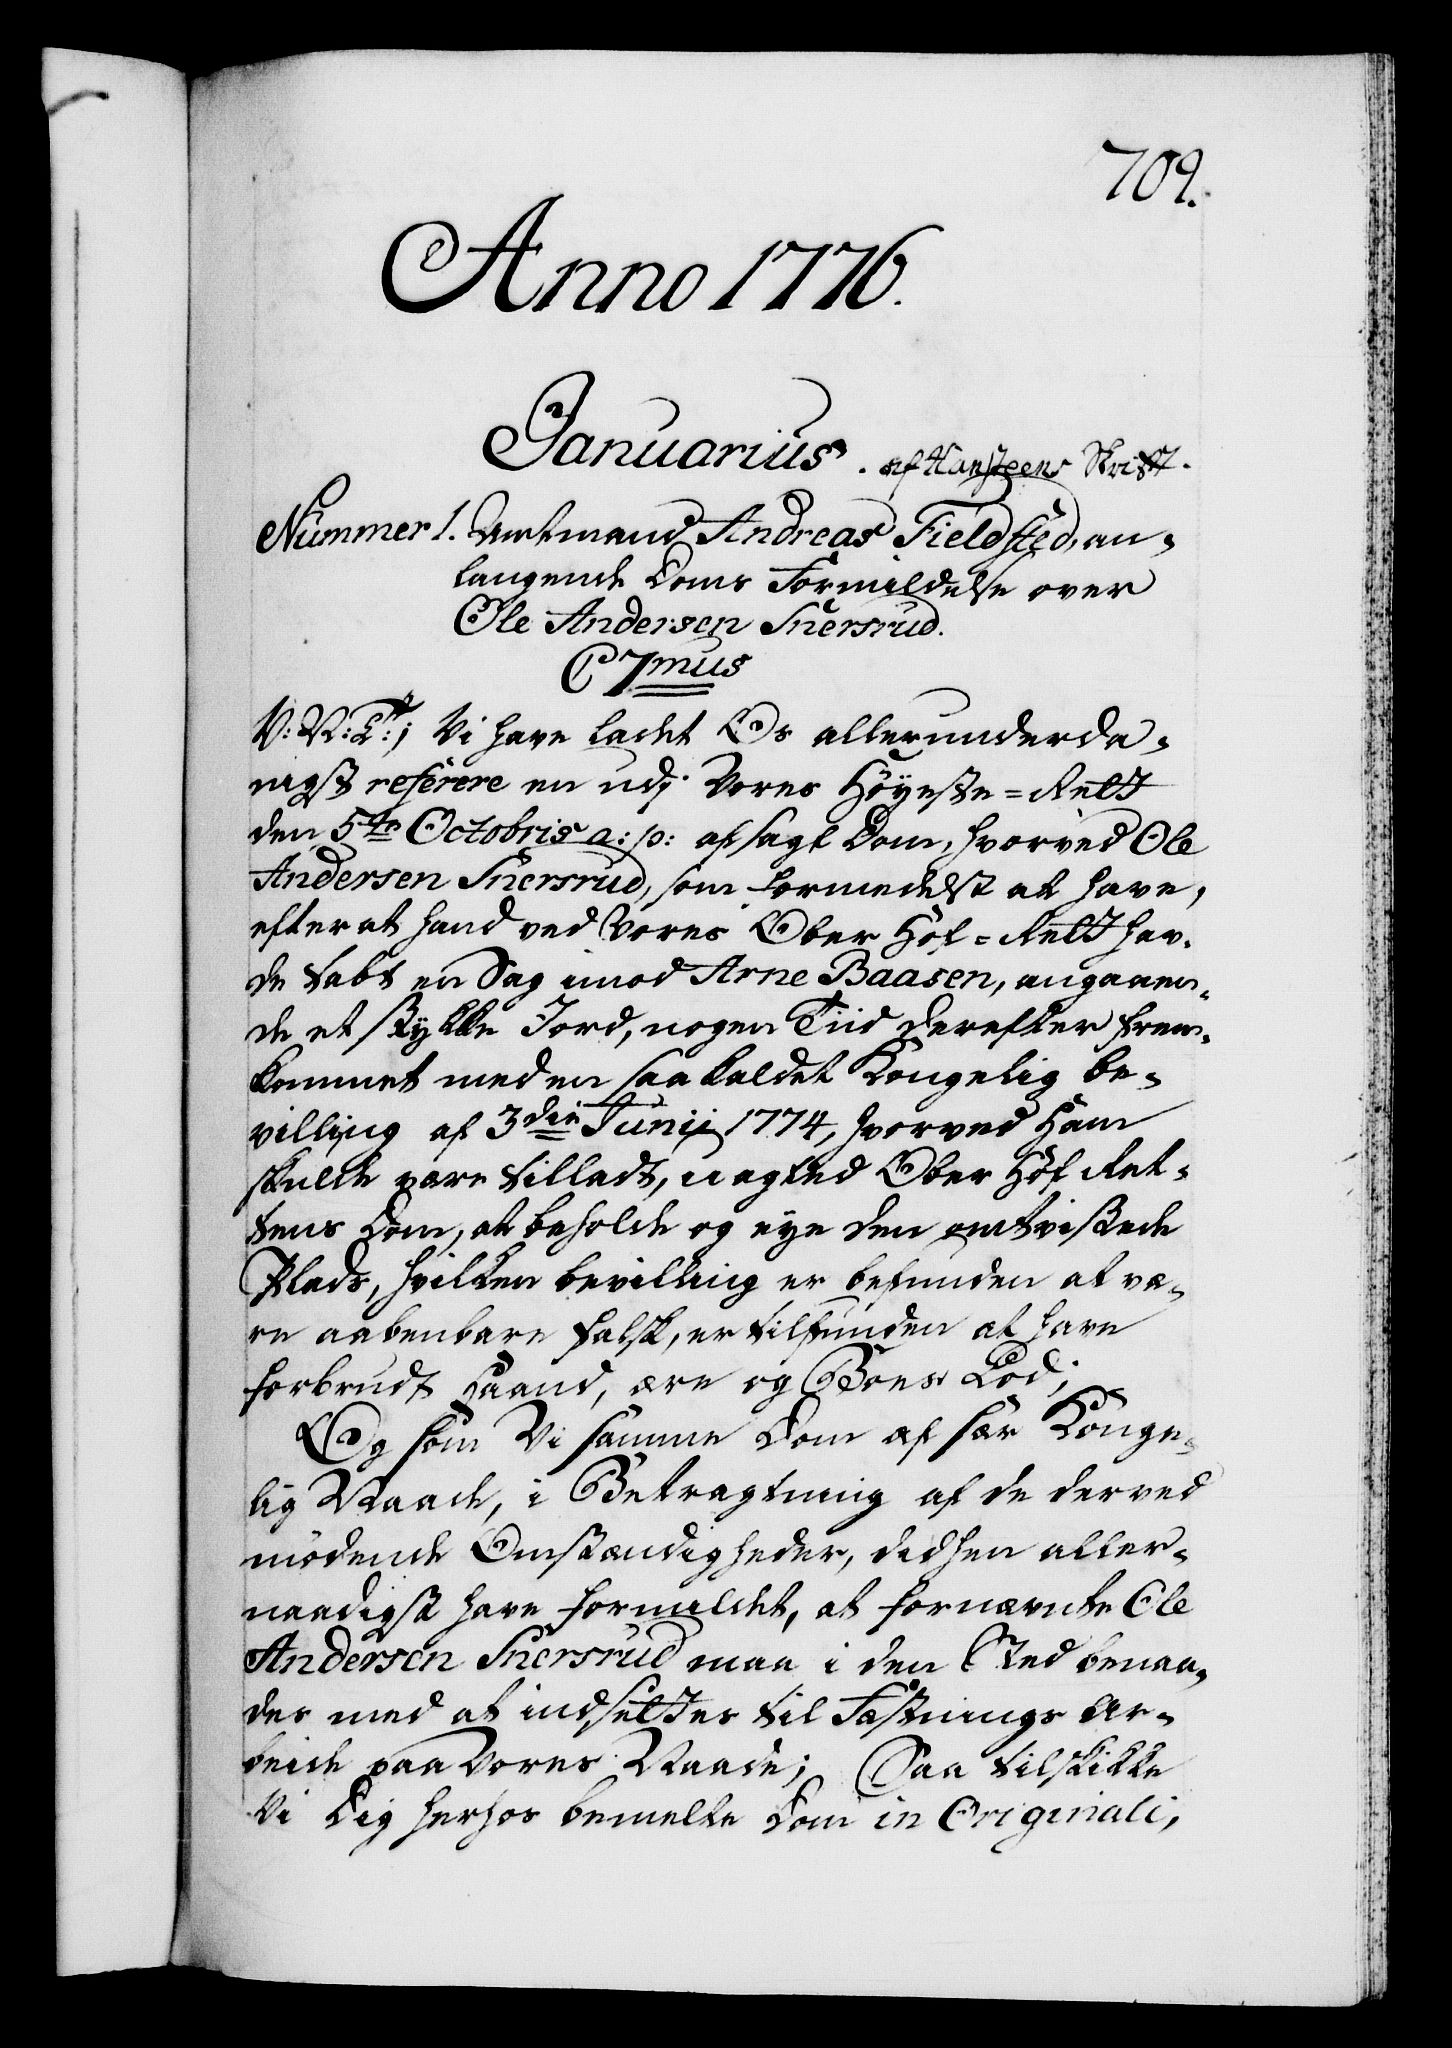 709.
Anno 1776.
Januarius. af Hansteens Skrift.
Nummer 1. Amtmand Andreas Fieldsted, an-
langende Doms Formildelse over
Ole Andersen Snersrud.
C 7mus
V: V: G:; Vi have ladet Os allerunderda-
nigst referere en udj Vores Höyeste-Rett
den 5te Octobris a: p: afsagt Dom, hvorved Ole
Andersen Snersrud, som formedelst at have,
efter at hand ved Vores Ober Hof-Rett hav-
de tabt en Sag imod Arne Baasen, angaaen-
de et stykke Jord, nogen Tiid derefter frem-
kommet med en saa kaldet Kongelig be-
villing af 3die Junij 1774, hvorved Ham
skulle være tilladt, uagted Ober Hof Ret-
tens Dom, at beholde og eye den omtvistede
Plads, hvilken bevilling er befunden at væ-
re aabenbare falsk, er tilfunden at have
forbrudt Haand, ære og Boes Lod;
Og som Vi samme Dom af sær Konge-
lig Naade, i Betragtning af de derved
mödende Omstændigheder, didhen aller-
naadigst have formildet, at fornævnte Ole
Andersen Snersrud maa i den Sted benaa-
des med at indsettes til Fæstnings Ar-
beide paa Vores Naade; Saa tilskikke
Vi Dig herhos bemelte Dom in Originali,